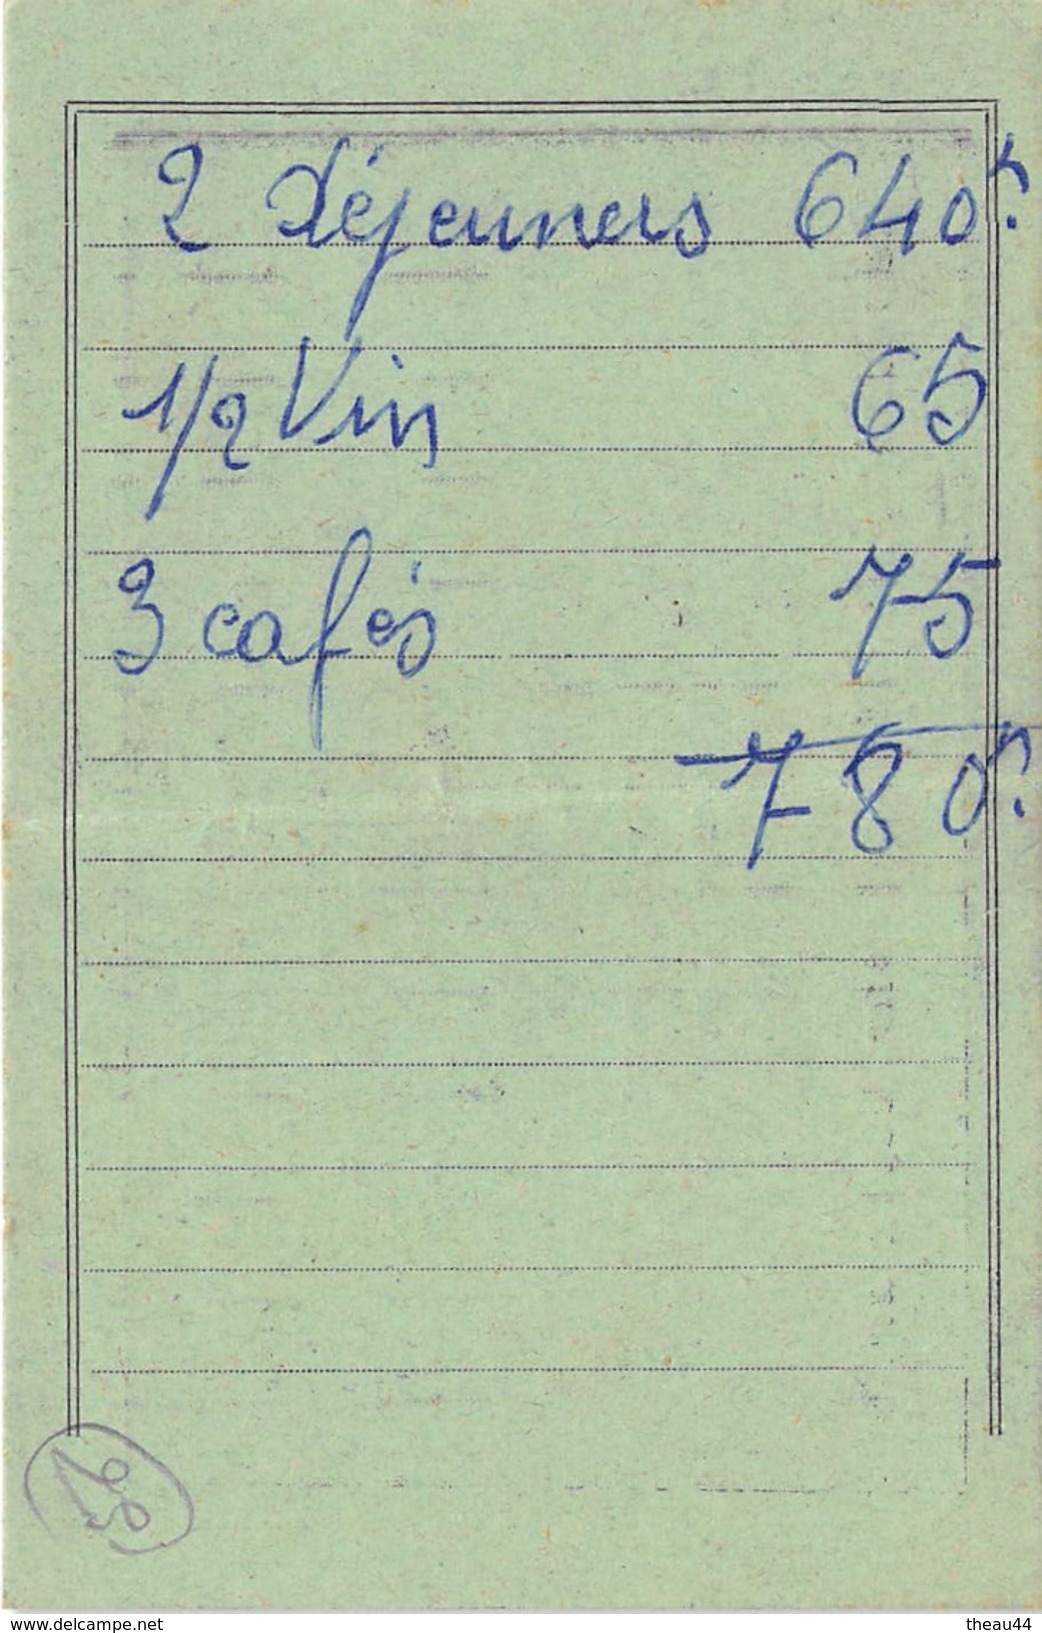 2 Déjeuners 640F.
1/2 Vin 65
3 cafés 75
780F.
20
www.delcampe.net
theau44